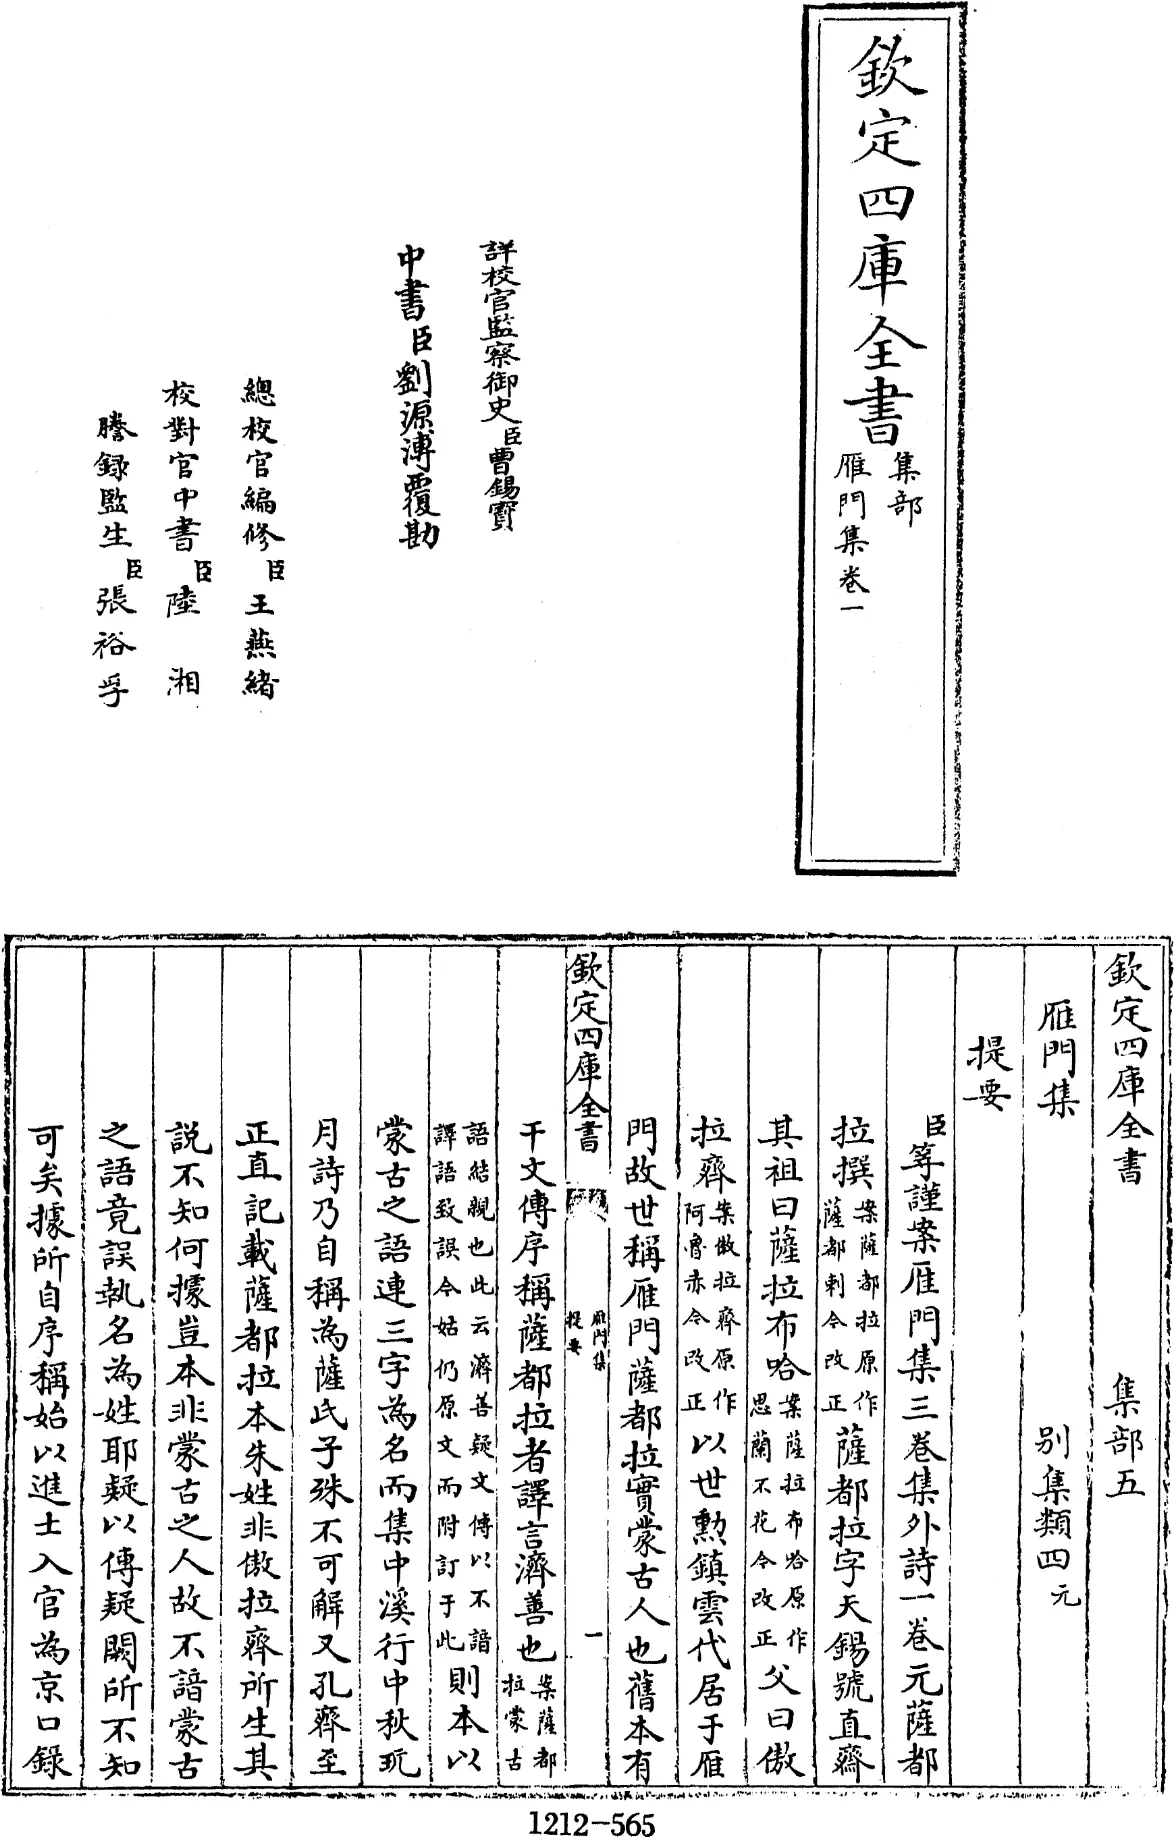 欽定四庫全書
集部
雁門集卷一
詳校官監察御史臣曹錫寶
中書臣劉源溥覆勘
總校官編修臣王燕緒
校對官中書臣陸湘
謄録監生臣張裕孚
欽定四庫全書 集部五
雁門集 别集類四元
提要
臣等謹案雁門集三巻集外詩一巻元薩都
拉撰案薩都拉原作薩都剌今改正薩都拉字天錫號直齋
其祖曰薩拉布哈案薩拉布哈原作思蘭不花今改正父曰傲
拉齊案傲拉齊原作阿魯赤今改正以世勲鎮雲代居于雁
門故世稱雁門薩都拉實蒙古人也舊本有
欽定四庫全書 雁門集提要 一
干文傳序稱薩都拉者譯言濟善也案薩都拉蒙古
語結親也此云濟善疑文傳以不諳譯語致誤今姑仍原文而附訂于此則本以
蒙古之語連三字為名而集中溪行中秋玩
月詩乃自稱為薩氏子殊不可解又孔齊至
正直記載薩都拉本朱姓非傲拉齊所生其
説不知何據豈本非蒙古之人故不諳蒙古
之語竟誤執名為姓耶疑以傳疑闕所不知
可矣據所自序稱始以進士入官為京口録
1212-565